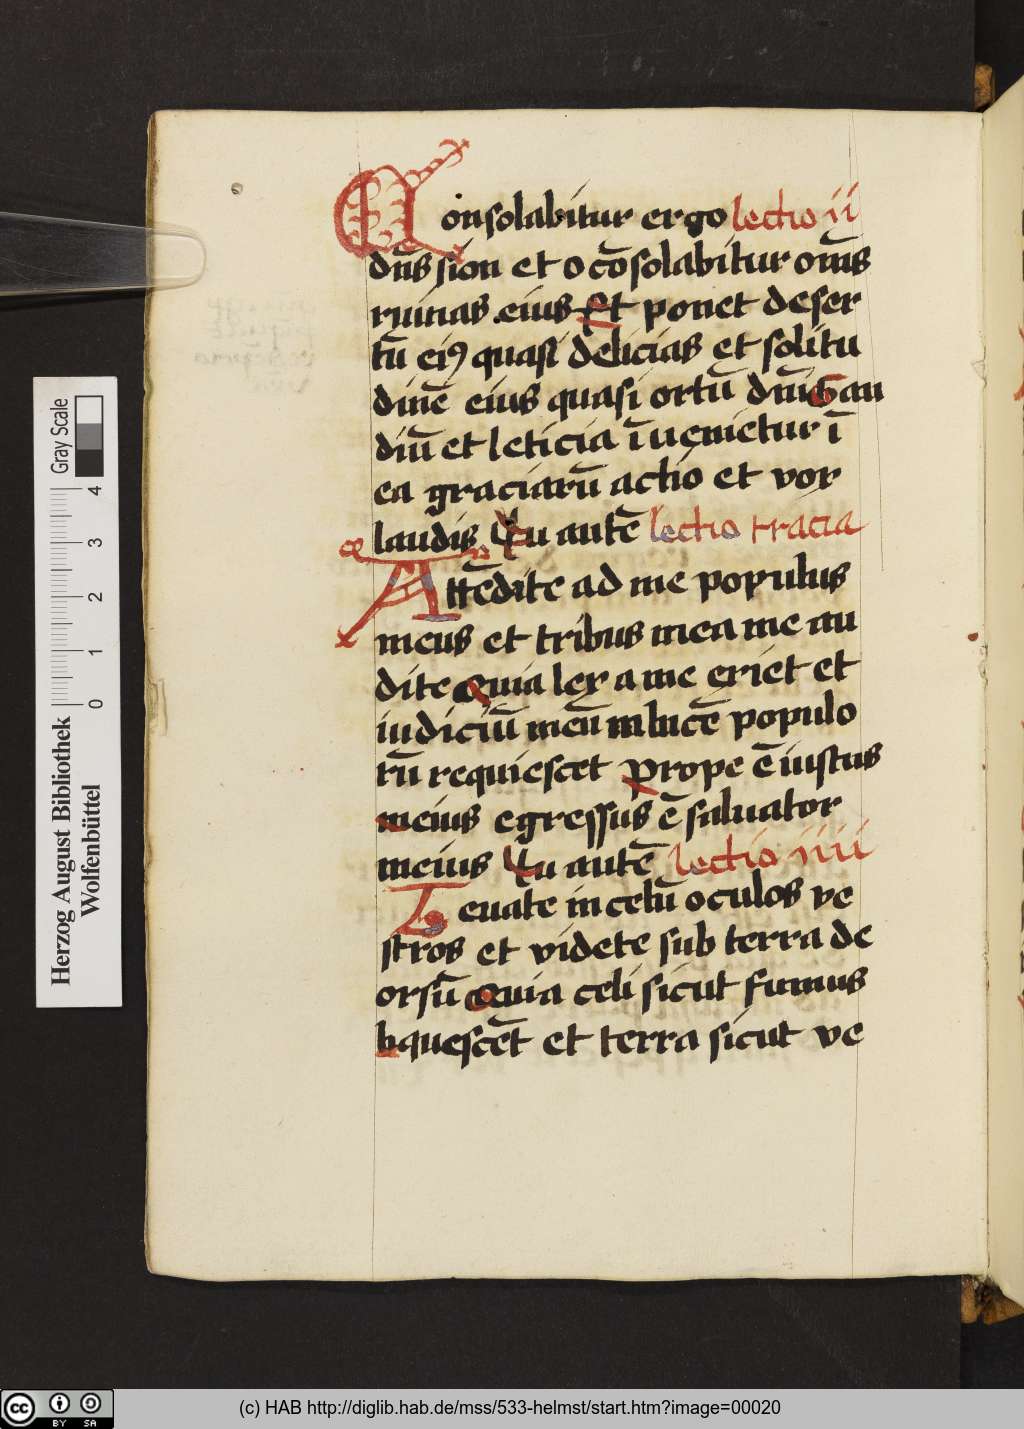 Consolabitur ergo lectio ii
dn̄s sion et o cōsolabitur om̄s
ruinas eius Et ponet deser
tū eiꝰ quasi delicias et solitu
dinē eius quasi ortū dn̄i Gau
diū et leticia ī uenietur ī
ea graciarū actio et vox
laudis Tu autē lectio tracia
Attēdite ad me populus
meus et tribus mea me au
dite Quia lex a me exiet et
iudiciū meū in lucē populo
rū requiescet Prope ē iustus
meius egressus ē saluator
meius Tu autē lectio iiii
Leuate in celū oculos ve
stros et videte sub terra de
orsū Quia celi sicut fumus
liquescēt et terra sicut ve
Gray Scale
4
3
2
1
0
Herzog August Bibliothek
Wolfenbüttel
cc BY SA
(c) HAB http://diglib.hab.de/mss/533-helmst/start.htm?image=00020